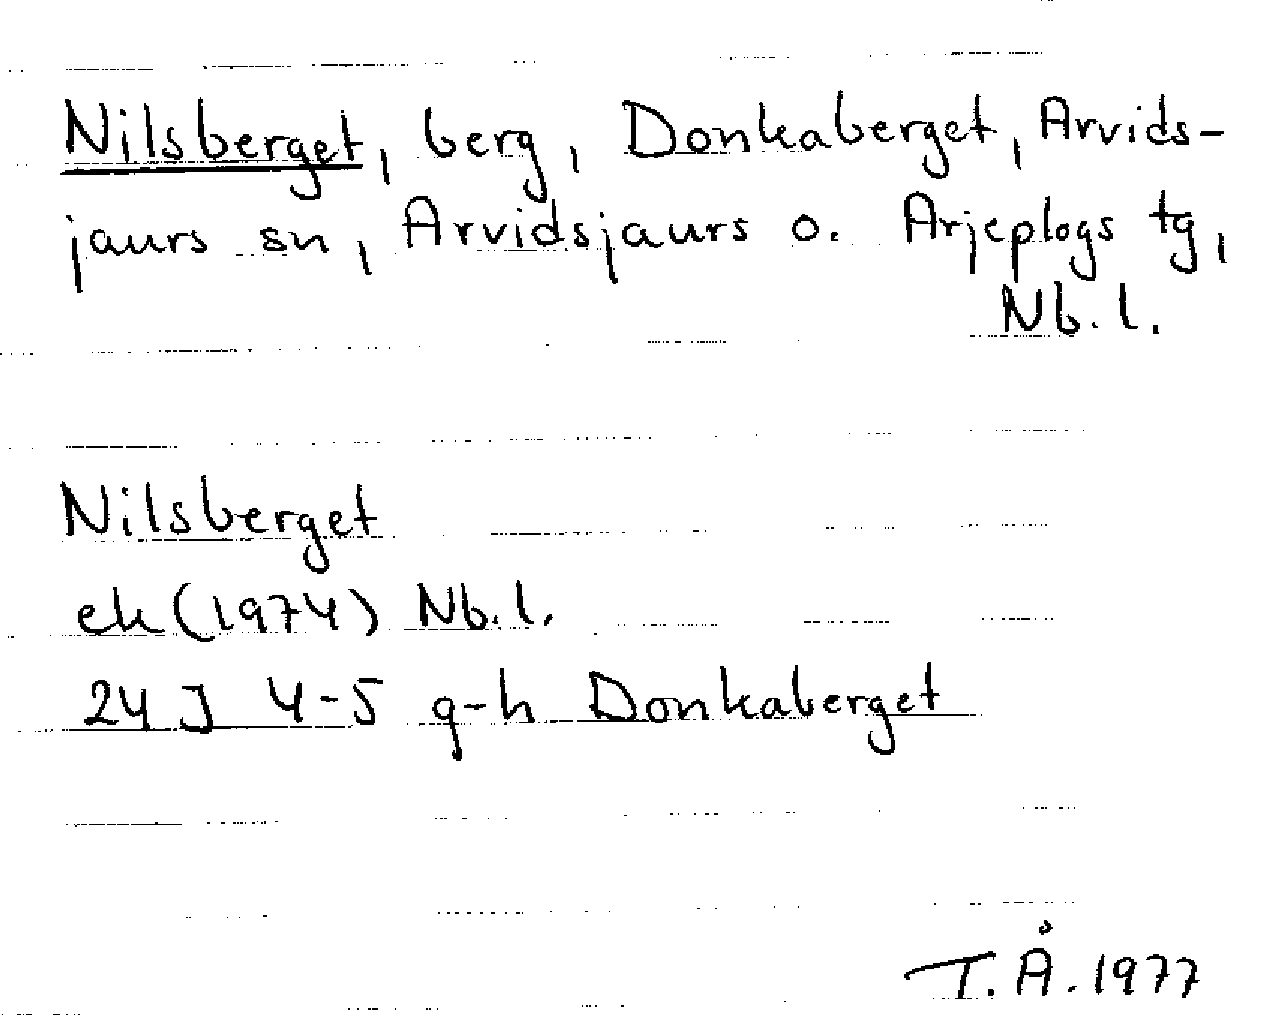 Nilsberget, berg, Donkaberget, Arvids-
jaurs sn, Arvidsjaurs o. Arjeplogs tg,
Nb. l.
Nilsberget
ek (1974) Nb. l.
24 J 4-5 g-h Donkaberget
T. Å. 1977